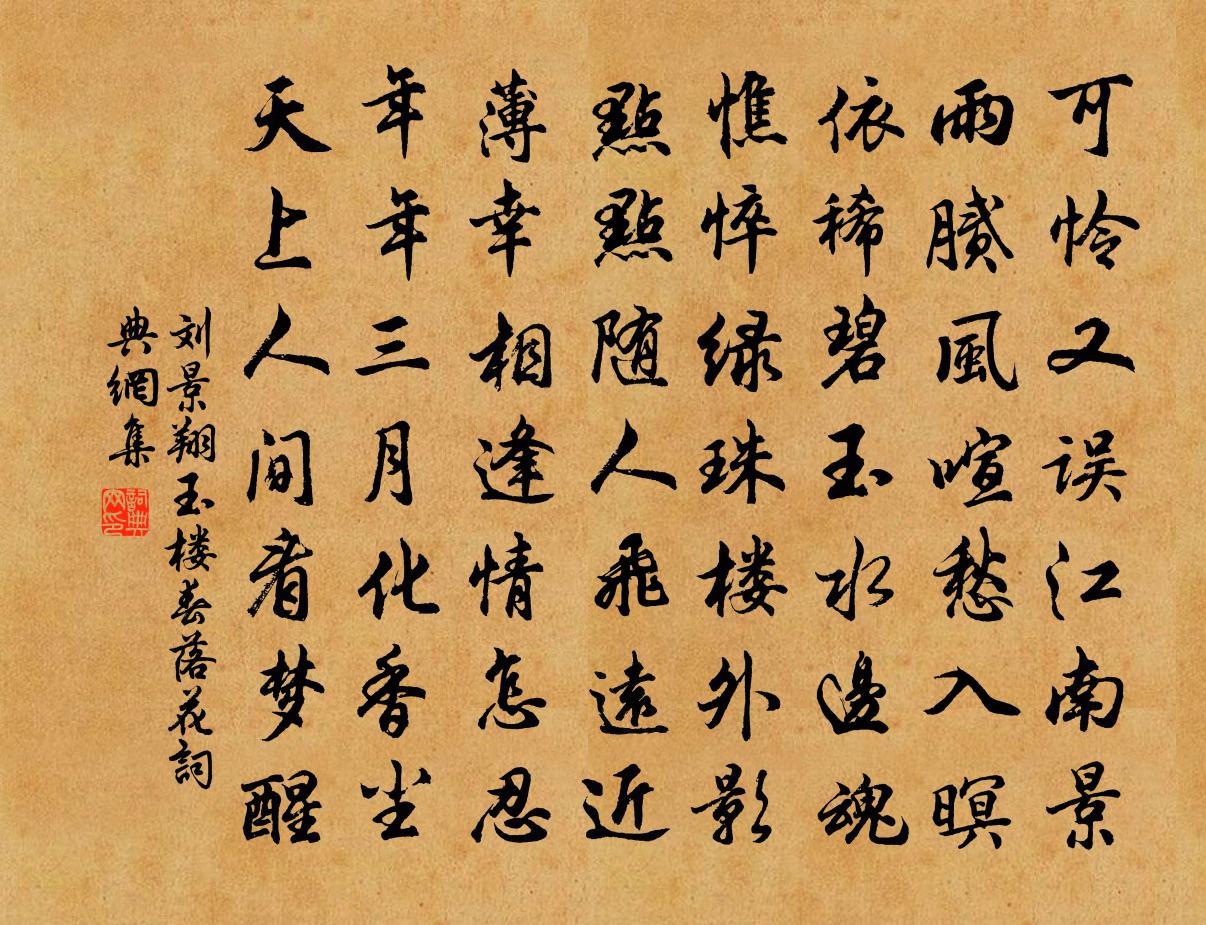 可怜又误江南景
雨腻風喧愁入暝
依稀碧玉水邊魂
憔悴绿珠楼外影
點點随人飛遠近
薄幸相逢情怎忍
年年三月化香尘
天上人间看梦醒
刘景翔玉楼春落花詞
典網集
詞典网印